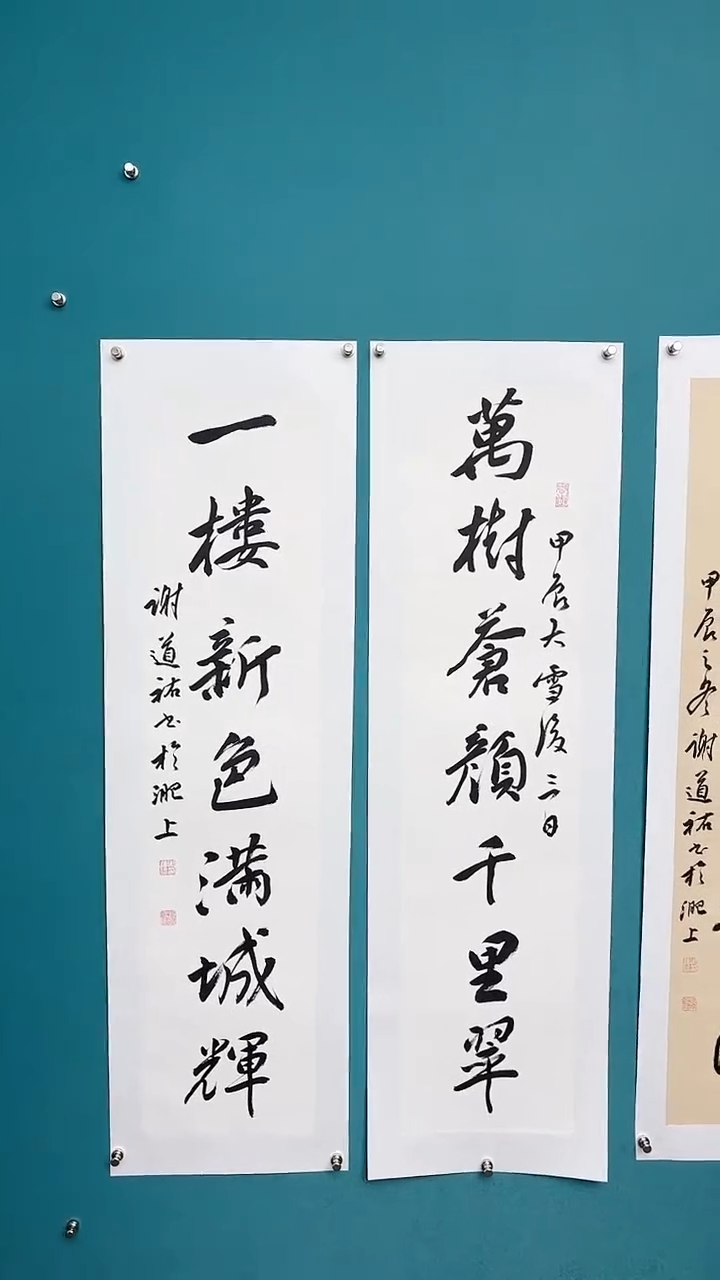 萬樹蒼顏千里翠
甲辰大雪後三日
一樓新色滿城輝
謝道祐书於淝上
甲辰之冬謝道祐书於淝上